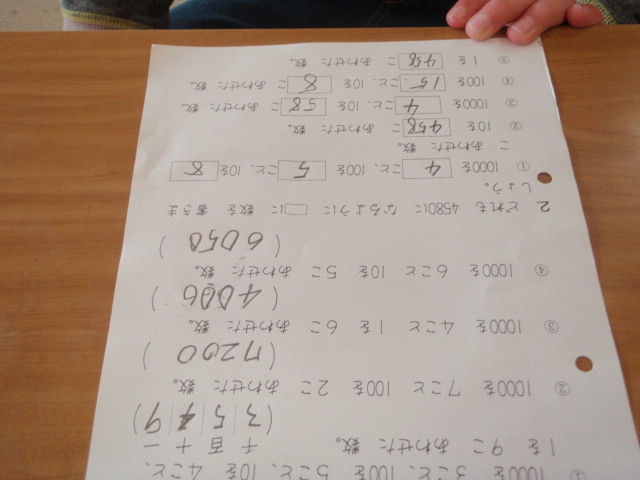 ① 1000を 3こと、100を 5こと、10を 4こと、
1を 9こ あわせた 数。 千 百 十 一
( 3 5 4 9 )
② 1000を 7こと 100を 2こ あわせた 数。
( 7200 )
③ 1000を 4こと 1を 6こ あわせた 数。
( 4006 )
④ 1000を 6こと 10を 5こ あわせた 数。
( 6050 )
2 どれも 4580に なるように □に 数を 書きま
しょう。
① 1000を 4 こと、100を 5 こと、10を 8
こ あわせた 数。
② 10を 458 こ あわせた 数。
③ 1000を 4 こと、10を 58 こ あわせた 数。
④ 100を 15 こと、10を 8 こ あわせた 数。
⑤ 1を 458 こ あわせた 数。